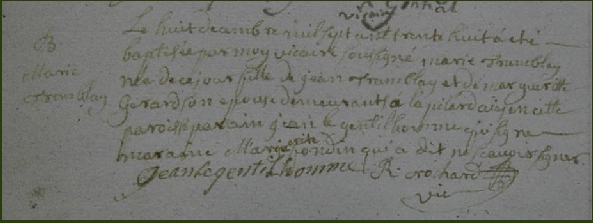 vicaire
B
Marie
Tremblay
Le huit decembre mil sept cent trente huit a eté
baptisée par moy vicaire soussigné marie Tremblay
née de ce jour fille de jean Tramblay et de marguerite
Gerard son epouse demeurants a en cette
paroisse parain jean le gentilhomme qui signe
maraine Marguerite jondin qui a dit ne scavoir signer
Jean Legentilhomme R. crochard
vic